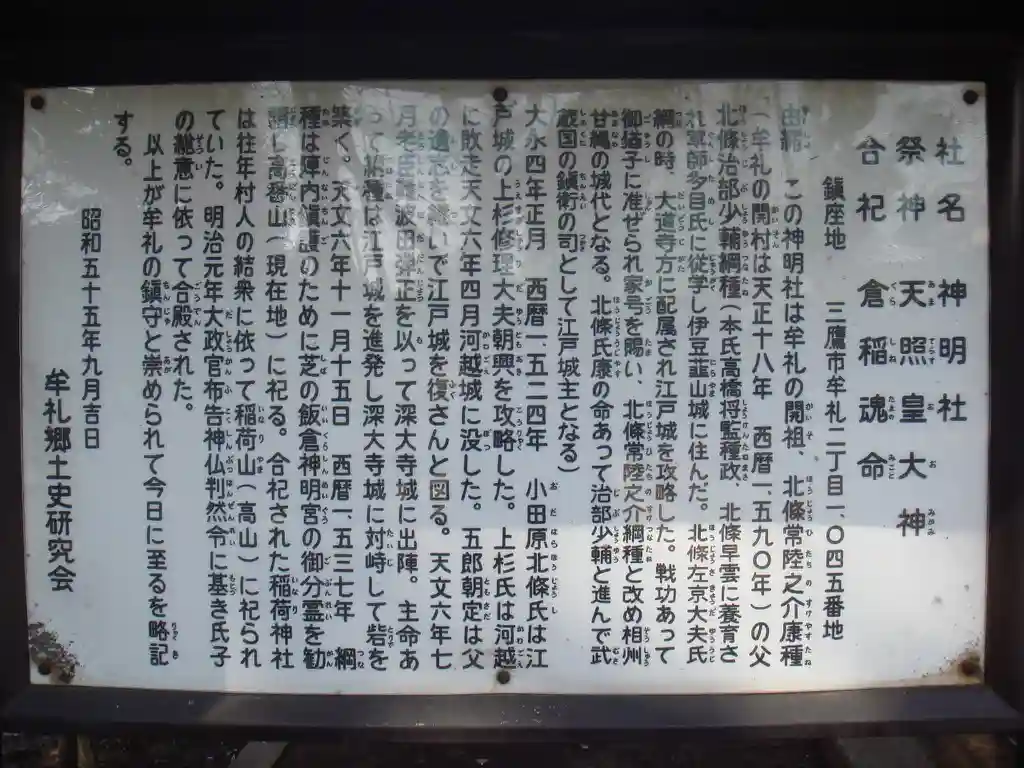 社名 神明社
祭神 天照皇大神
合祀 倉稲魂命
鎮座地 三鷹市牟礼二丁目一、〇四五番地
由緒 この神明社は牟礼の開祖、北條常陸之介康種
(牟礼の開村は天正十八年 西暦一五九〇年)の父
北條治部少輔綱種(本氏高橋将監種政、北條早雲に養育さ
れ軍師多目氏に従学し伊豆韮山城に住んだ。北條左京大夫氏
綱の時、大道寺方に配属され江戸城を攻略した。戦功あって
御猶子に准ぜられ家号を賜い、北條常陸之介綱種と改め相州
甘縄の城代となる。北條氏康の命あって治部少輔と進んで武
蔵国の鎮衛の司として江戸城主となる)
大永四年正月 西暦一五二四年 小田原北條氏は江
戸城の上杉修理大夫朝興を攻略した。上杉氏は河越
に敗走天文六年四月河越城に没した。五郎朝定は父
の遺志を継いで江戸城を復さんと図る。天文六年七
月老臣難波田弾正を以って深大寺城に出陣。主命あ
って綱種は江戸城を進発し深大寺城に対峙して砦を
築く。天文六年十一月十五日 西暦一五三七年 綱
種は陣内鎮護のために芝の飯倉神明宮の御分霊を勧
請し高番山(現在地)に祀る。合祀された稲荷神社
は往年村人の結衆に依って稲荷山(高山)に祀られ
ていた。明治元年大政官布告神仏判然令に基き氏子
の総意に依って合殿された。
以上が牟礼の鎮守と崇められて今日に至るを略記
する。
昭和五十五年九月吉日
牟礼郷土史研究会